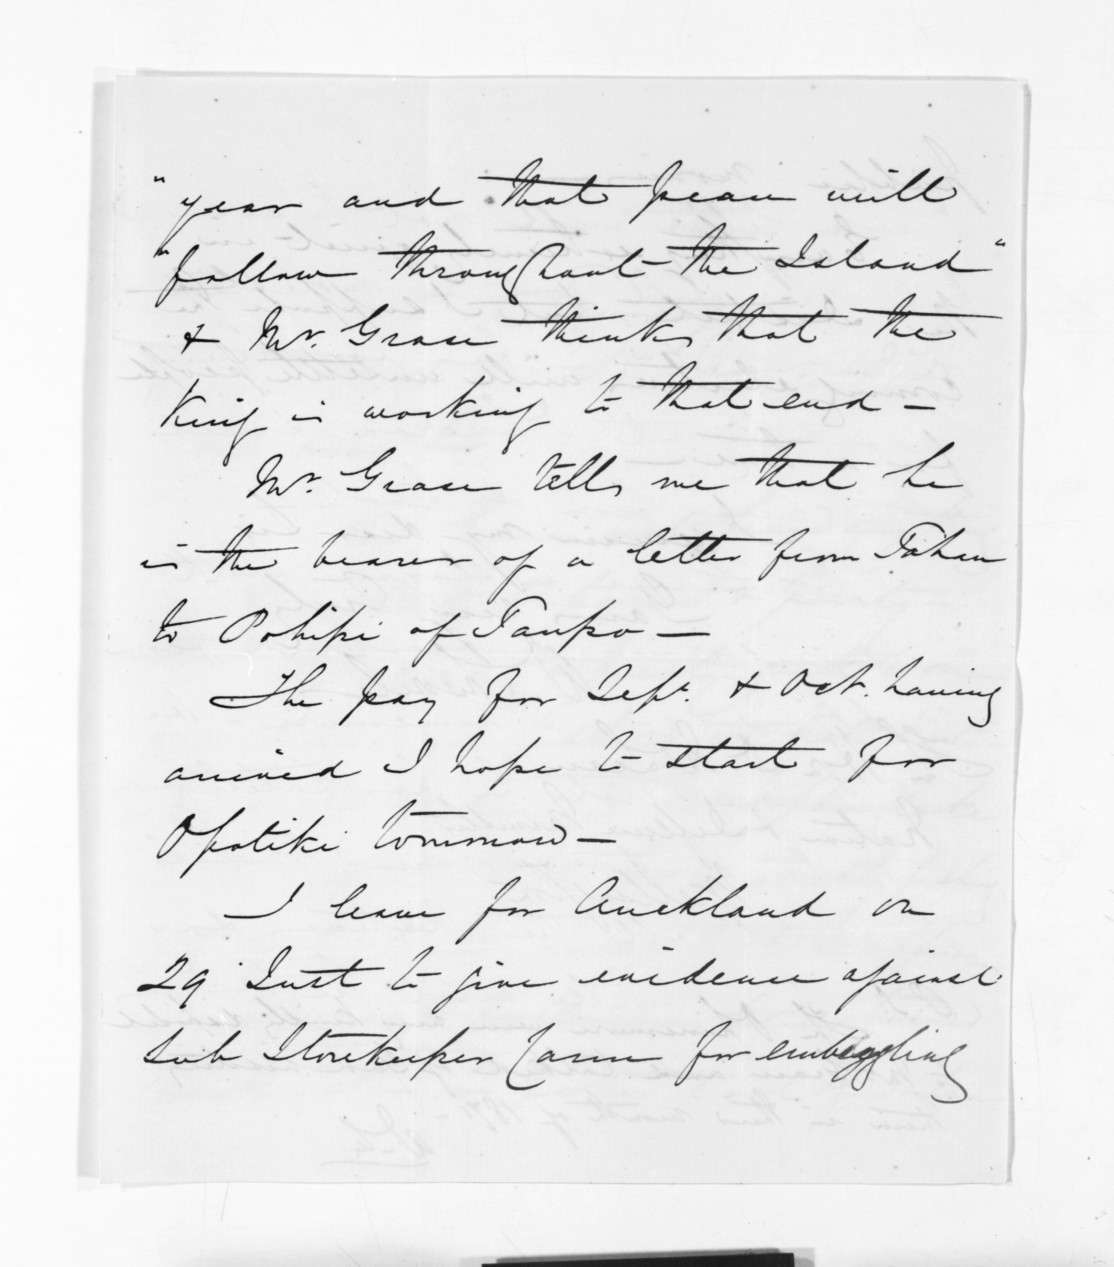 "year and that peace will
"follow throughout the Island"
& Mr. Grace thinks that the
King is working to that end -
Mr. Grace tells me that he
is the bearer of a letter from
to Pohipi of Taupo -
The pay for Sept. & Oct. having
arrived I hope to start for
Opotiki tommorow -
I leave for Auckland on
29 Inst to give evidence against
Sub Storekeeper for embezzling